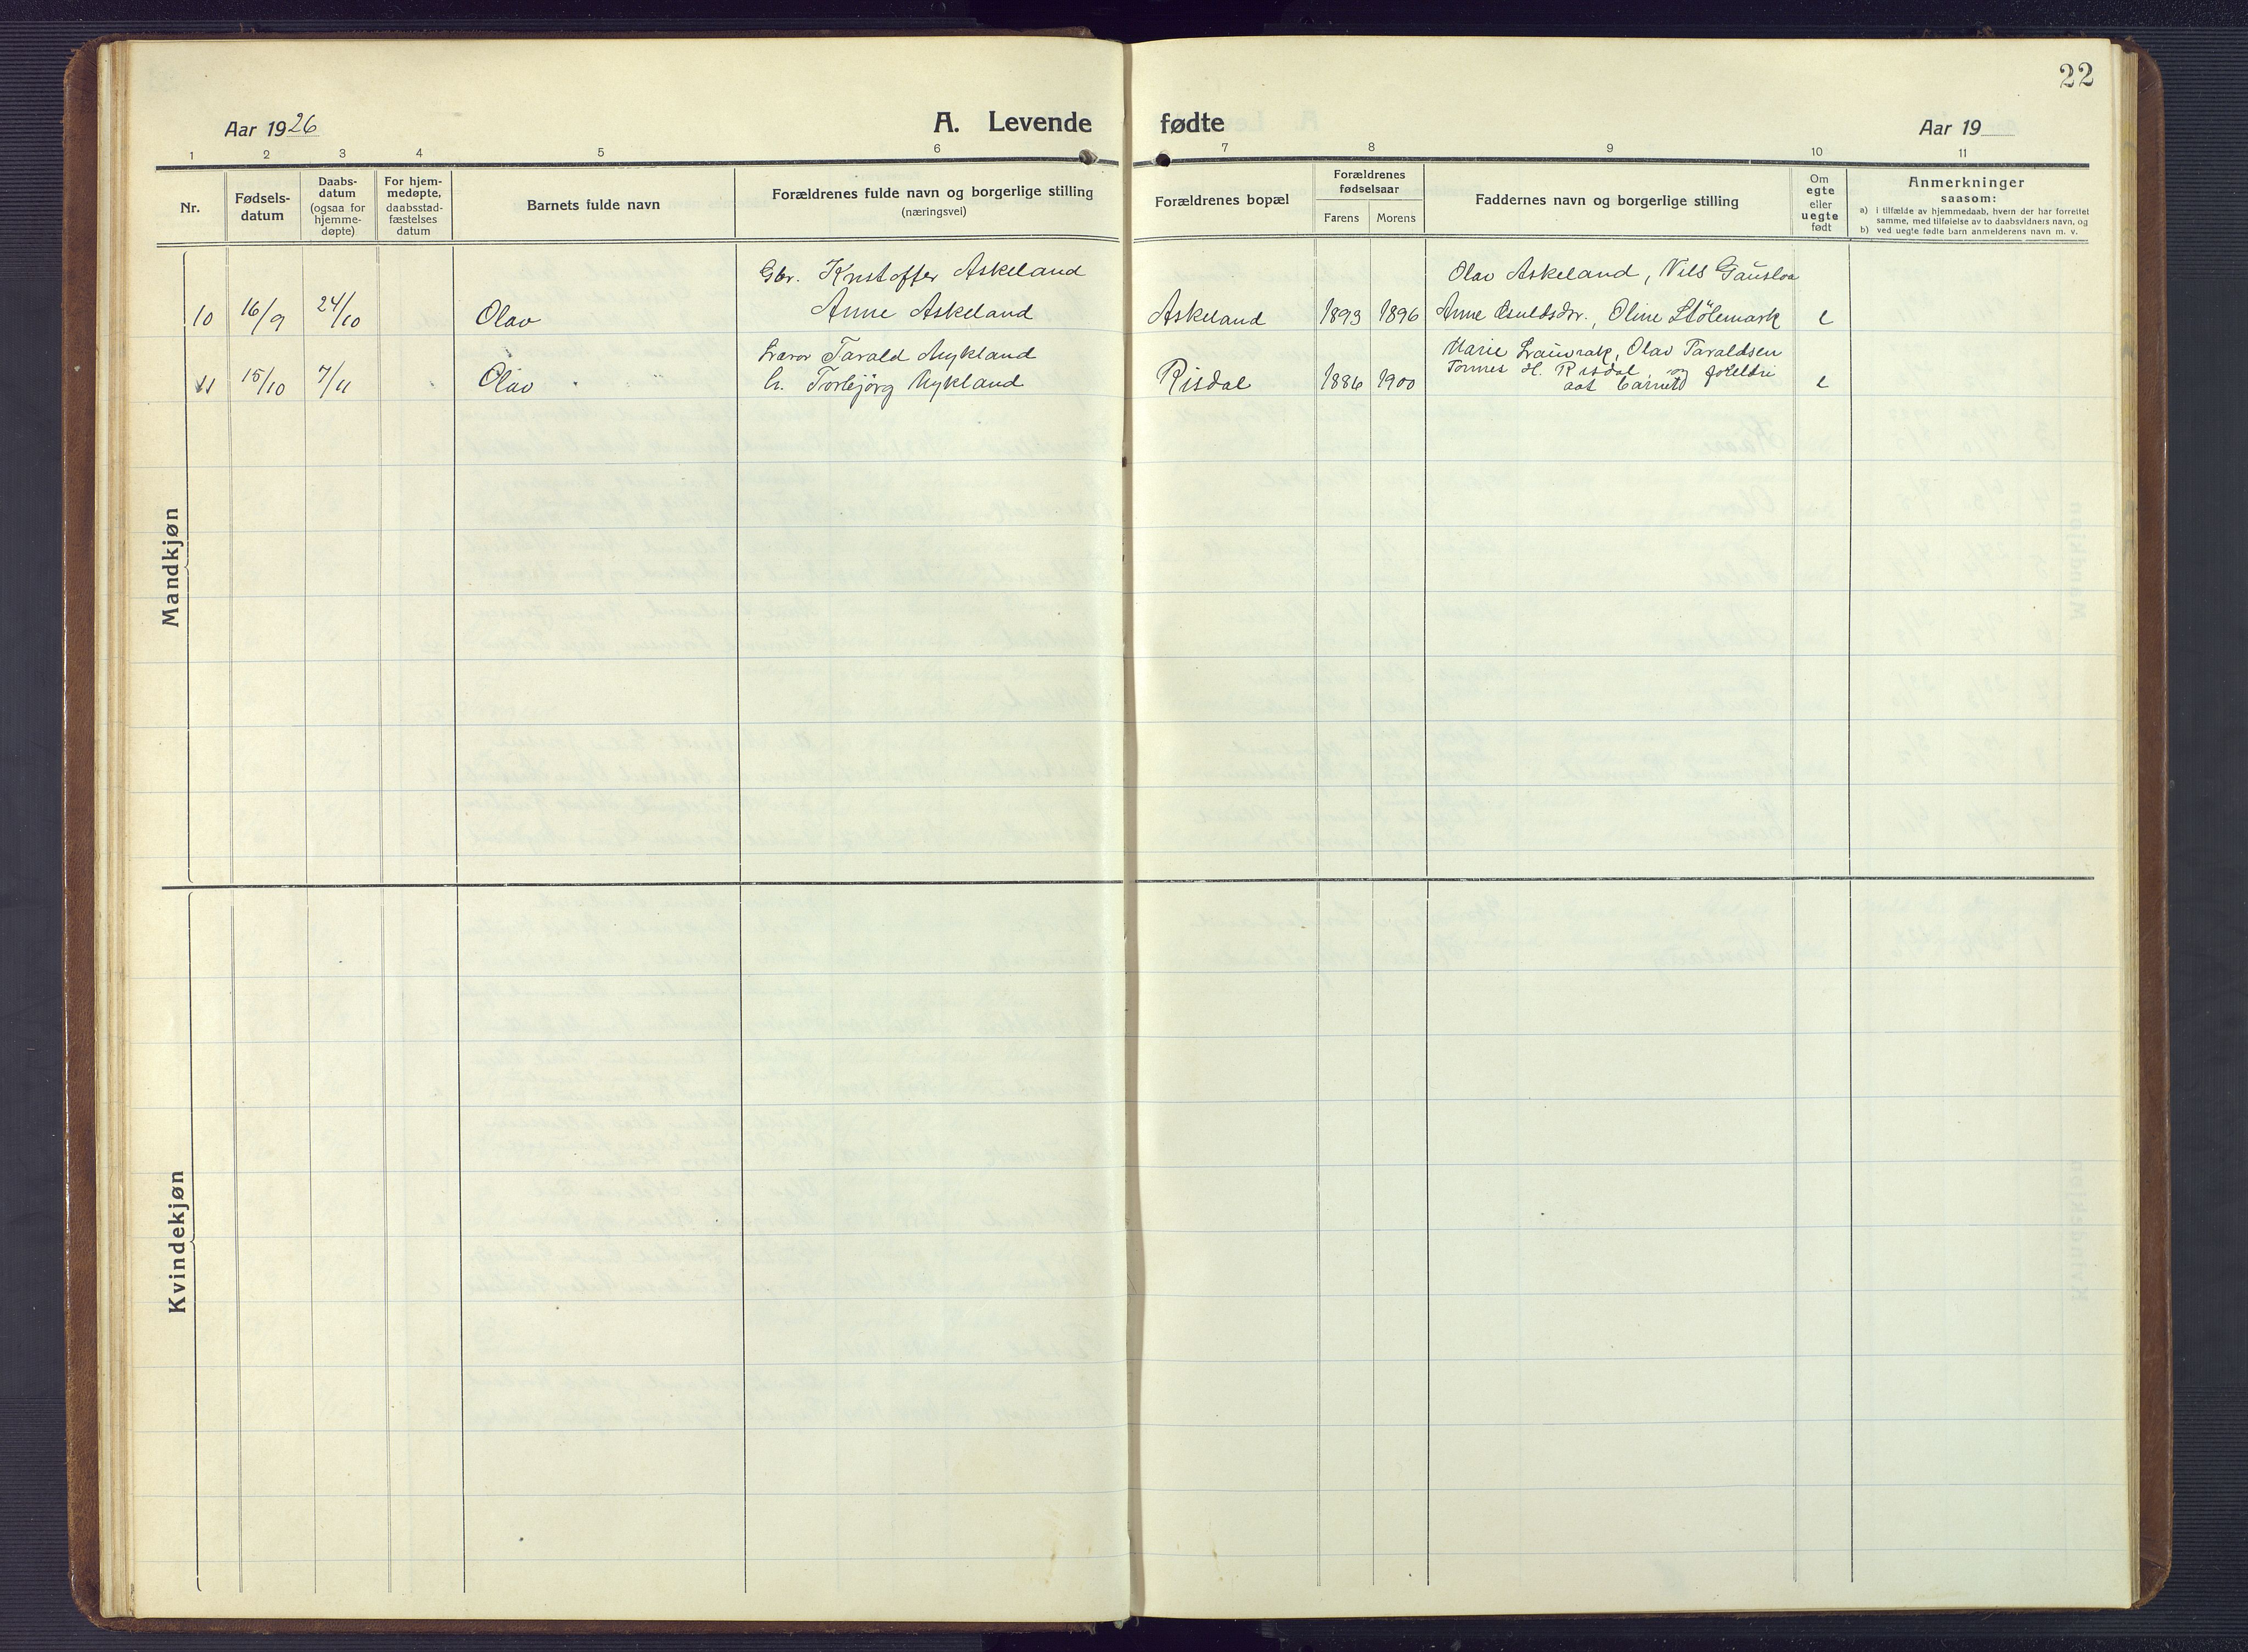 22
Aar 1926
A. Levende fødte
Aar 19
1 2 3 4 5 6 7 8 9 10 11
Nr.
Fødsels-
datum
Daabs-
datum
(ogsaa for
hjemme-
døpte)
For hjem-
medøpte,
daabsstad-
fæstelses
datum
Barnets fulde navn
Forældrenes fulde navn og borgerlige stilling
(næringsvei)
Forældrenes bopæl
Forældrenes
fødselsaar
Farens Morens
Faddernes navn og borgerlige stilling
Om
egte
eller
uegte
født
Anmerkninger
saasom:
a) i tilfælde av hjemmedaab, hvem der har forrettet
samme, med tilføielse av to daabsvidners navn, og
b) ved uegte fødte barn anmelderens navn m. v.
Mandkjøn
Gbr. Kristoffer Askeland Olav Askeland, Nils Gauslaa
10 16/9 24/10 Olav Anne Askeland Askeland 1893 1896 Anne , Oline Stölemark e
Lærer Tarald Mykland Marie Lauvrak, Olav Taraldsen
11 15/10 7/11 Olav h. Torbjörg Mykland Risdal 1886 1900 Tormes H. Risdal, og foreldri e
aat barnet
Kvindekjøn